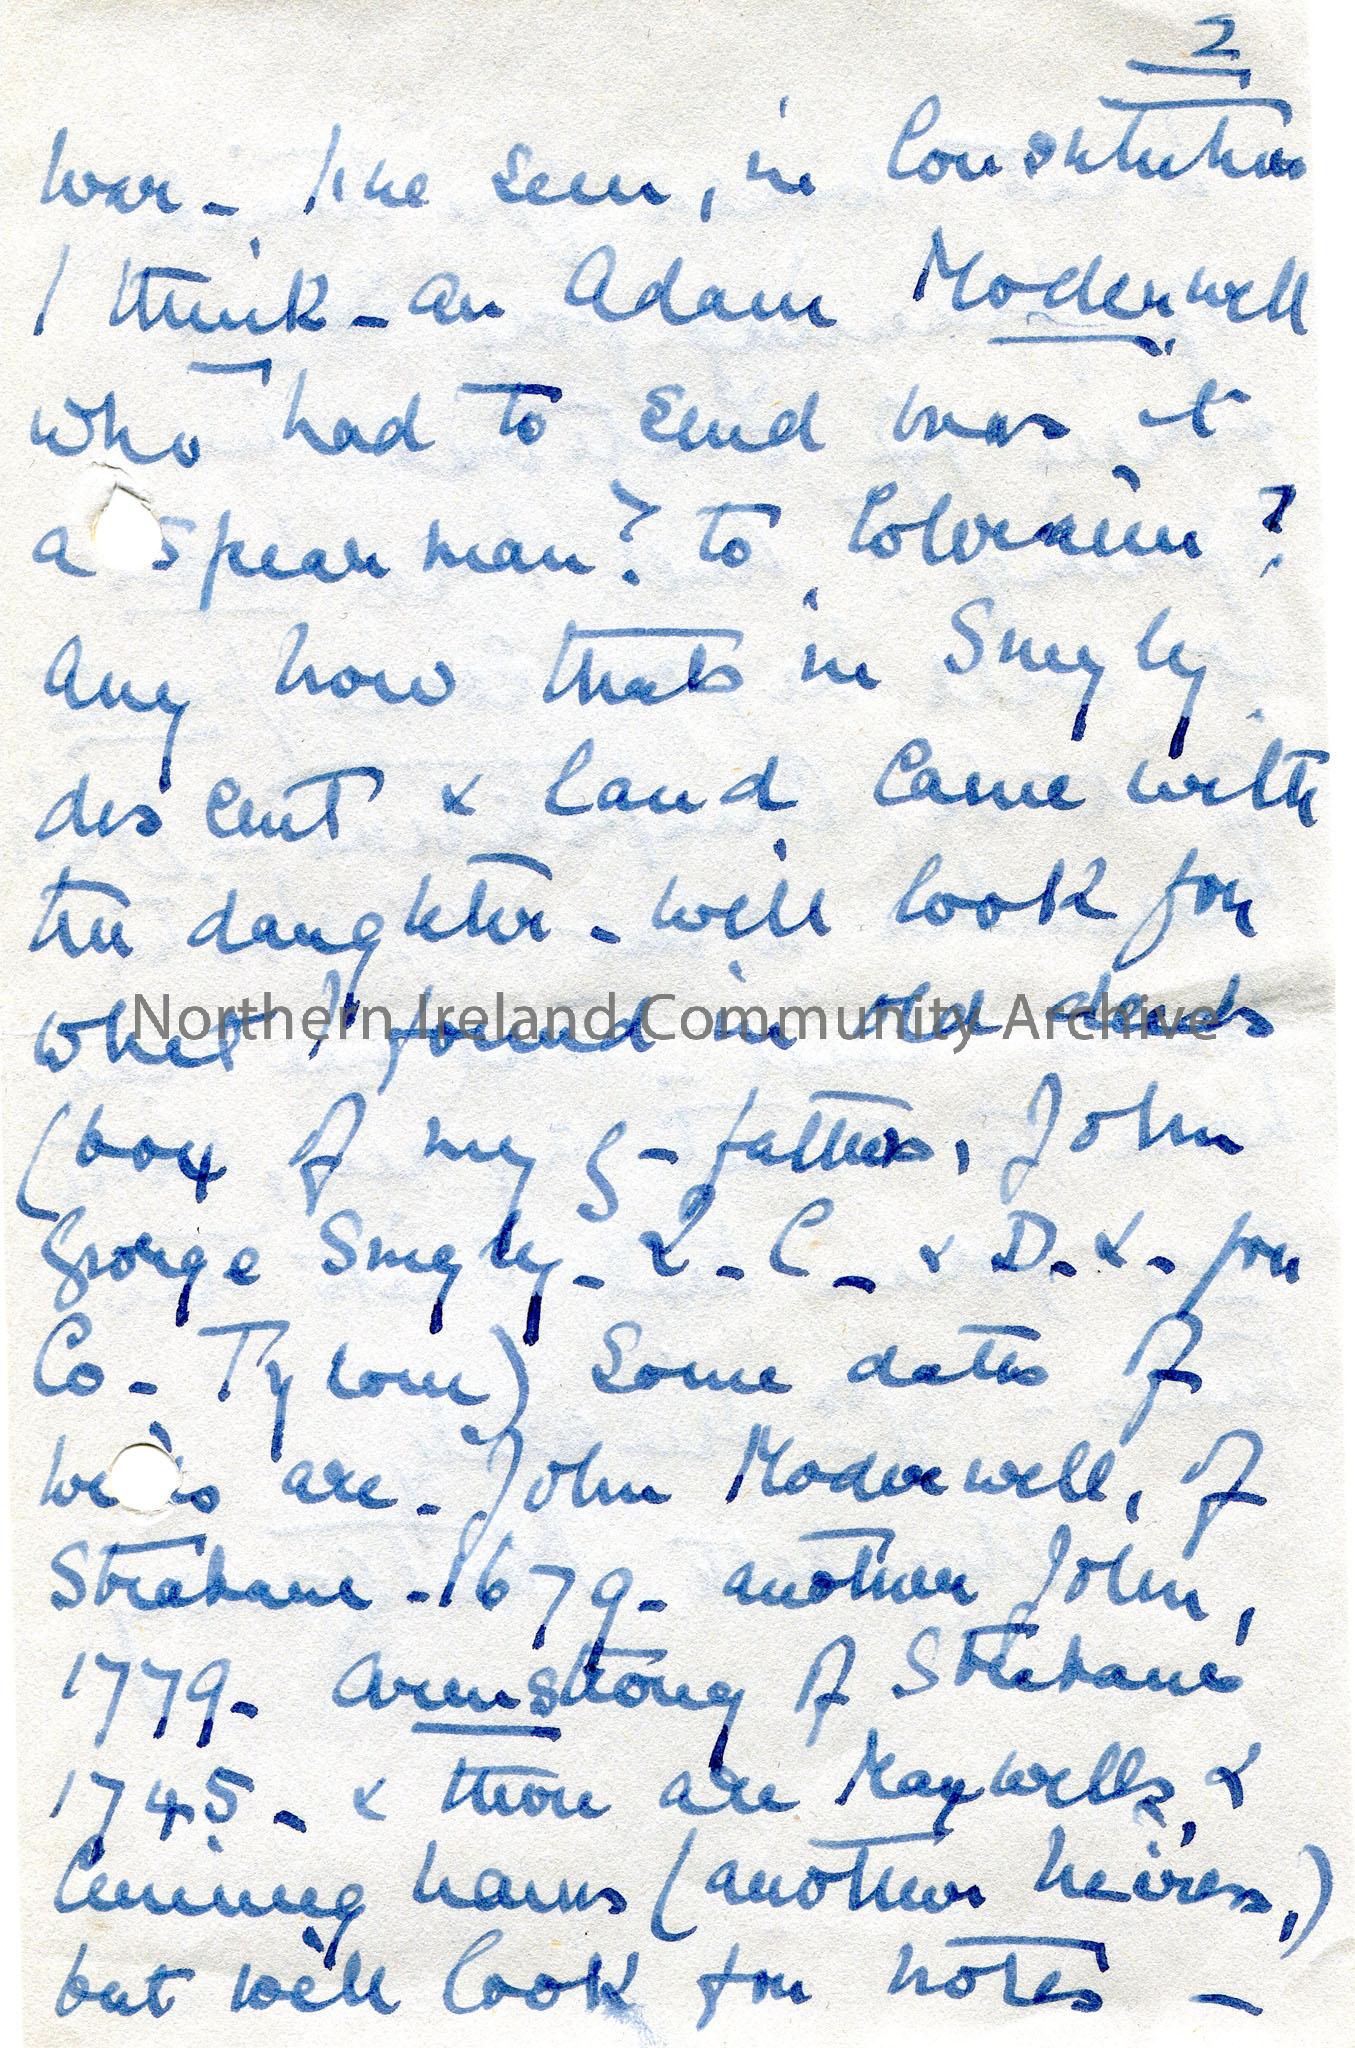 2
war - I've seen, in Constitution
I think - an Adam Moderwell
who had to send was it
a Spearman? to Coleraine?
Any how thats in Smyly
descent & land came with
the daughter - will look for
what I found in old deeds
(box of my g-father, John
George Smyly - Q.C. & D.L. for
Co- Tyrone) Some dates of
wills are - John Moderwell, of
Strabane - 1679 - another John,
1779 - Armstrong of Strabane
1745 - & there are Maxwells, &
Cunninghams (another heiress,)
but will look for notes -
Northern Ireland Community Archive